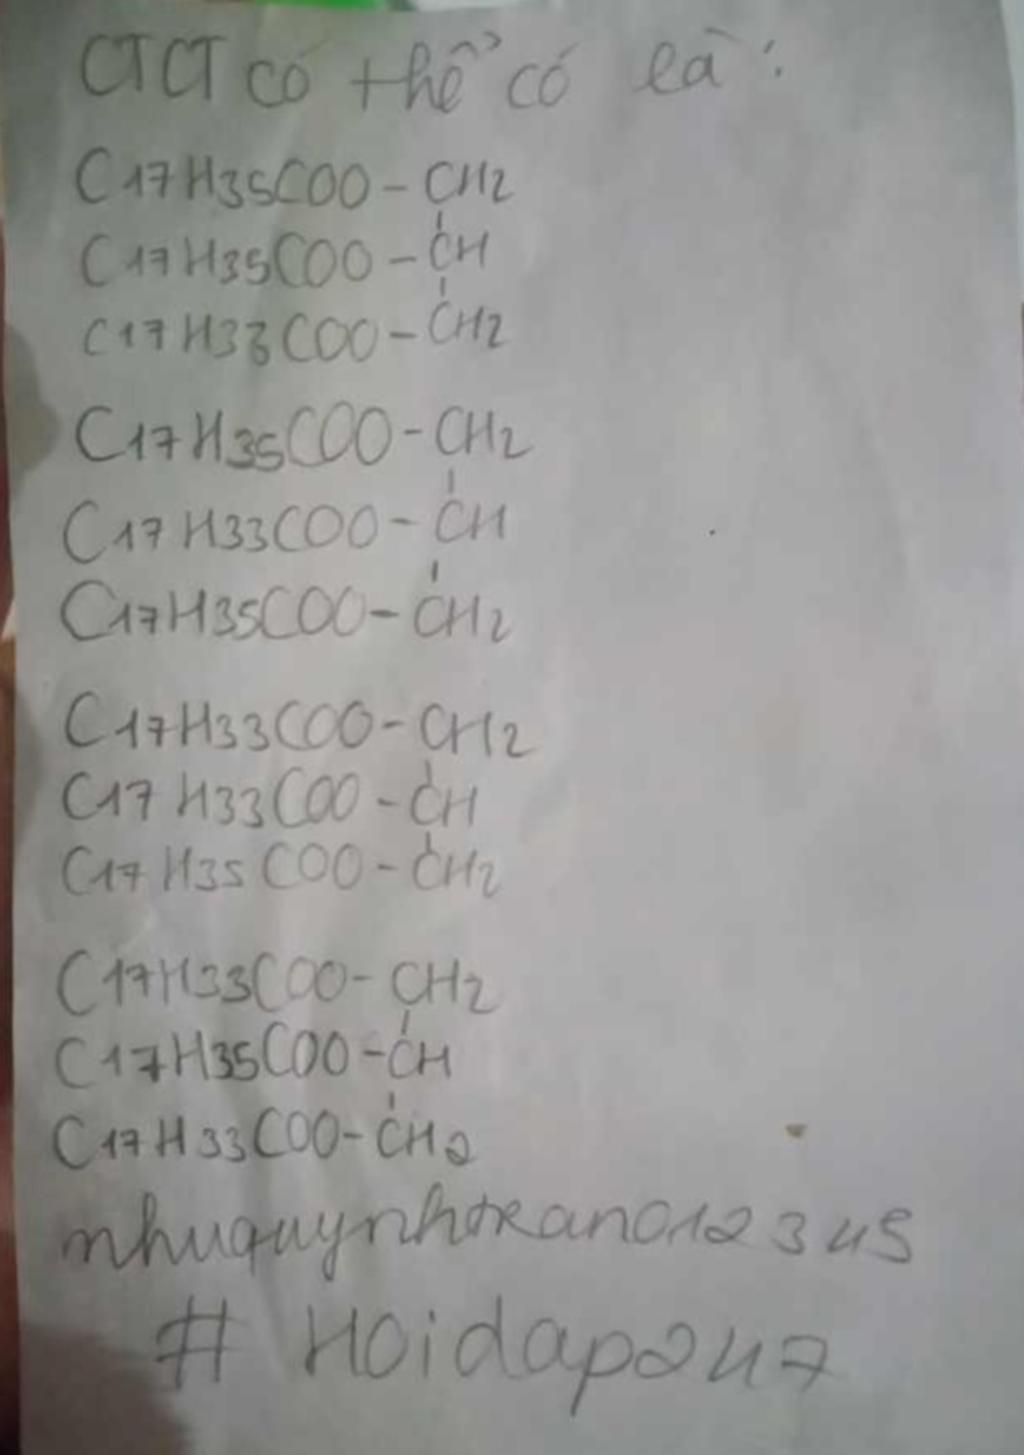 CTCT có thể có là:
C17H35COO-CH2
C17H35COO-CH
C17H33COO-CH2
C17H35COO-CH2
C17H33COO-CH
C17H35COO-CH2
C17H33COO-CH2
C17H33COO-CH
C17H35COO-CH2
C17H33COO-CH2
C17H35COO-CH
C17H33COO-CH2
nhuquynhtran012345
# Hoidap247